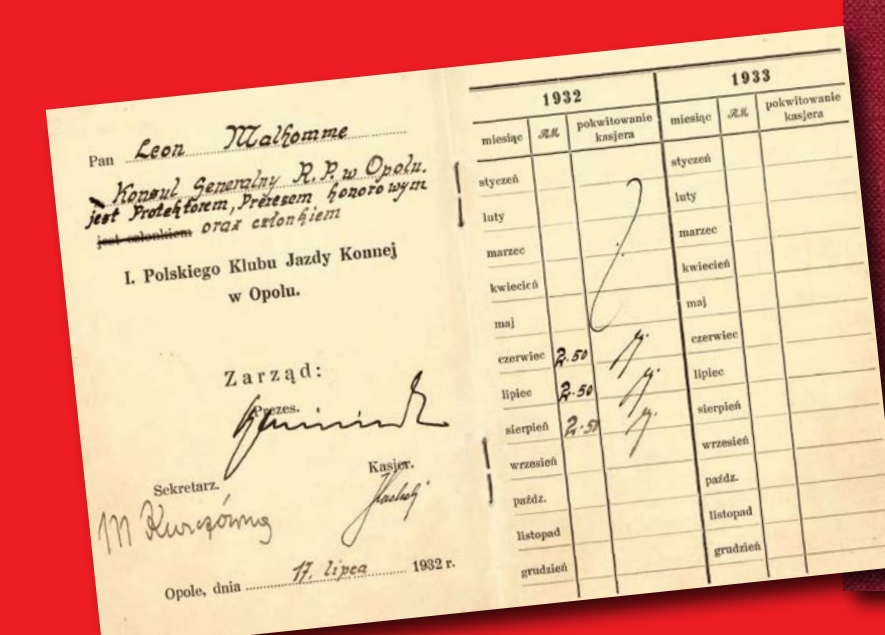 Pan Leon Malhomme
Konsul Generalny R. P. w Opolu.
jest Protektorem, Prezesem honorowym
jest członkiem oraz członkiem
I. Polskiego Klubu Jazdy Konnej
w Opolu.
Zarząd:
Prezes.
Sekretarz.
Kasjer.
M Kurzówna
Opole, dnia 17. lipca 1932 r.
1932
miesiąc RM. pokwitowanie kasjera
styczeń
luty
marzec
kwiecień
maj
czerwiec 2.50
lipiec 2.50
sierpień 2.50
wrzesień
paźdz.
listopad
grudzień
1933
miesiąc RM. pokwitowanie kasjera
styczeń
luty
marzec
kwiecień
maj
czerwiec
lipiec
sierpień
wrzesień
paźdz.
listopad
grudzień